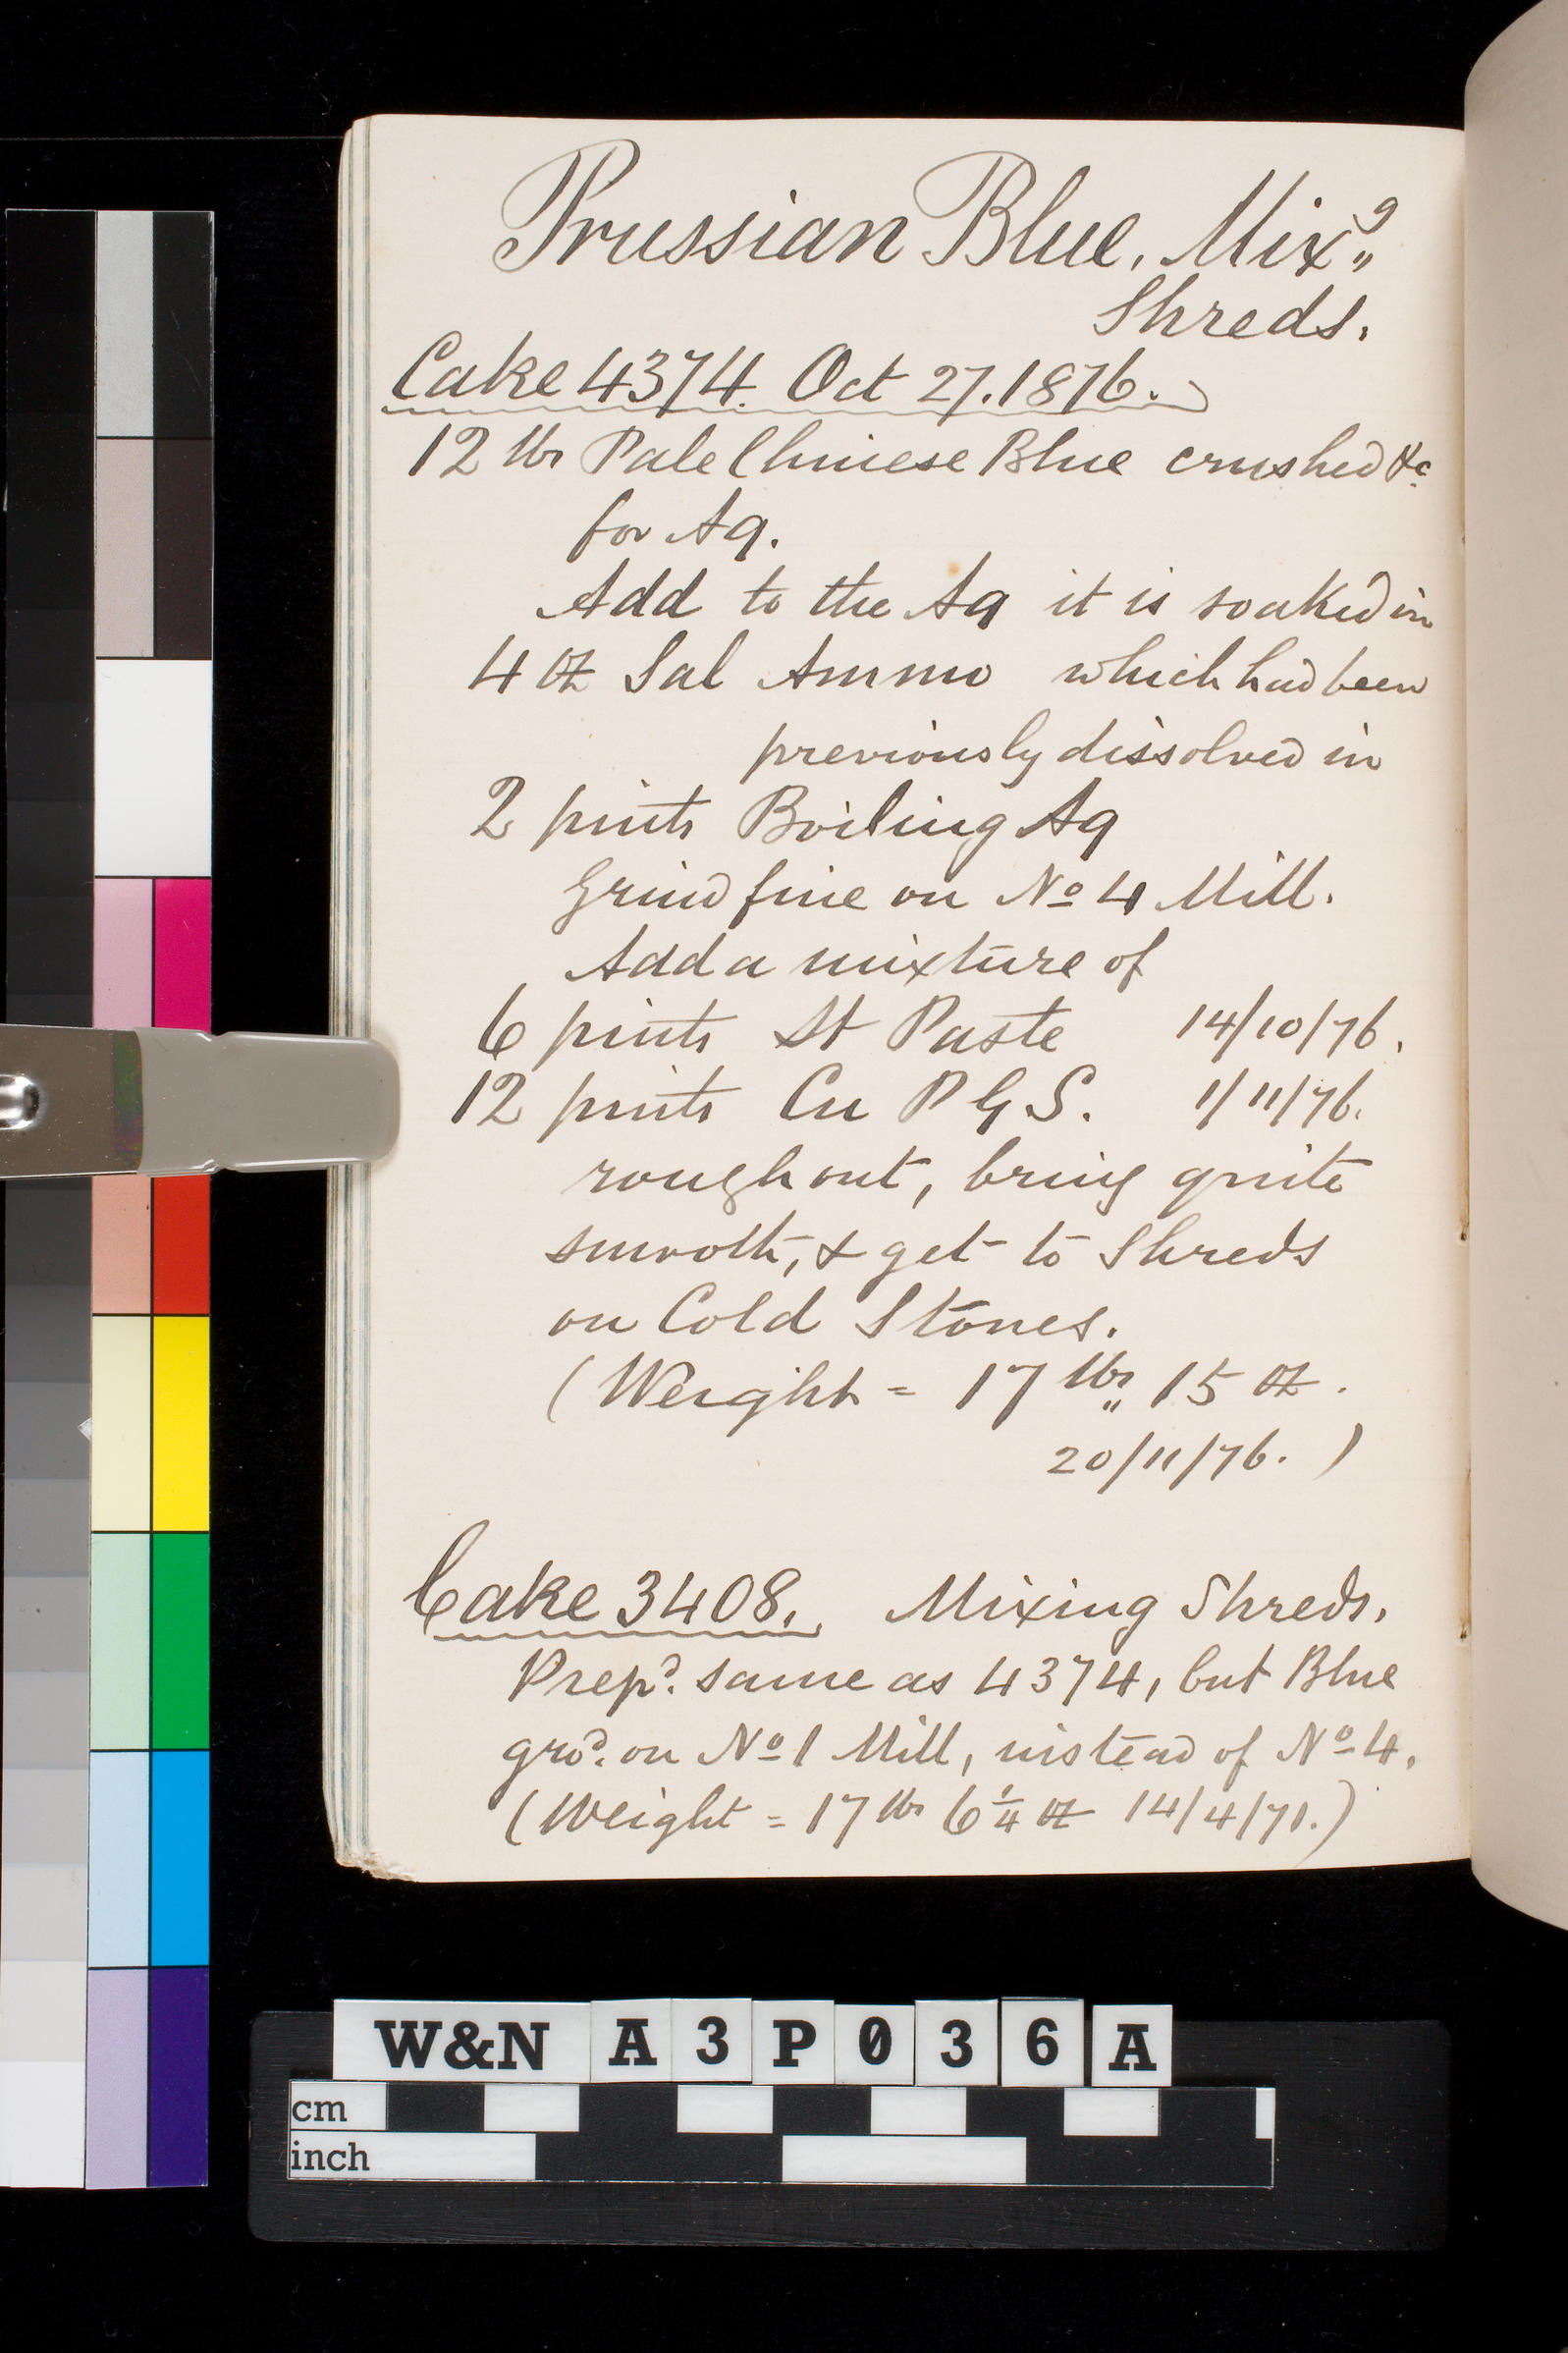 Prussian Blue. Mixg
Shreds.
Cake 4374. Oct 27. 1876.
12 lbs Pale Chinese Blue crushed &c
for Aq.
Add to the Aq it is soaked in
4 oz Sal Ammo which had been
previously dissolved in
2 pints Boiling Aq
Grind fine on No 4 Mill.
Add a mixture of
6 pints St Paste 14/10/76.
12 pints Cu P G S. 1/11/76.
rough out, bring quite
smooth, & get to Shreds
on Cold Stones.
(Weight = 17 lbs 15 oz.
20/11/76. )
Cake 3408. Mixing Shreds.
Prepd. same as 4374, but Blue
grod. on No 1 Mill, instead of No 4.
(Weight = 17 lbs 6 1/4 oz 14/4/71.)
W&N A3P036A
cm
inch